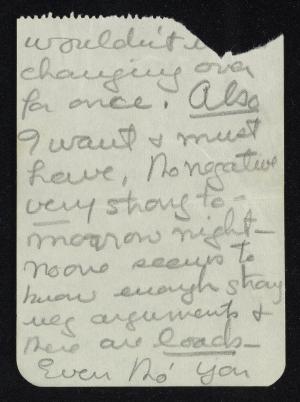 wouldn't
changing over
for once. Also
I want & must
have, No negative
very strong to-
morrow night—
no one seems to
know enough strong
neg arguments &
there are loads—
Even tho' you